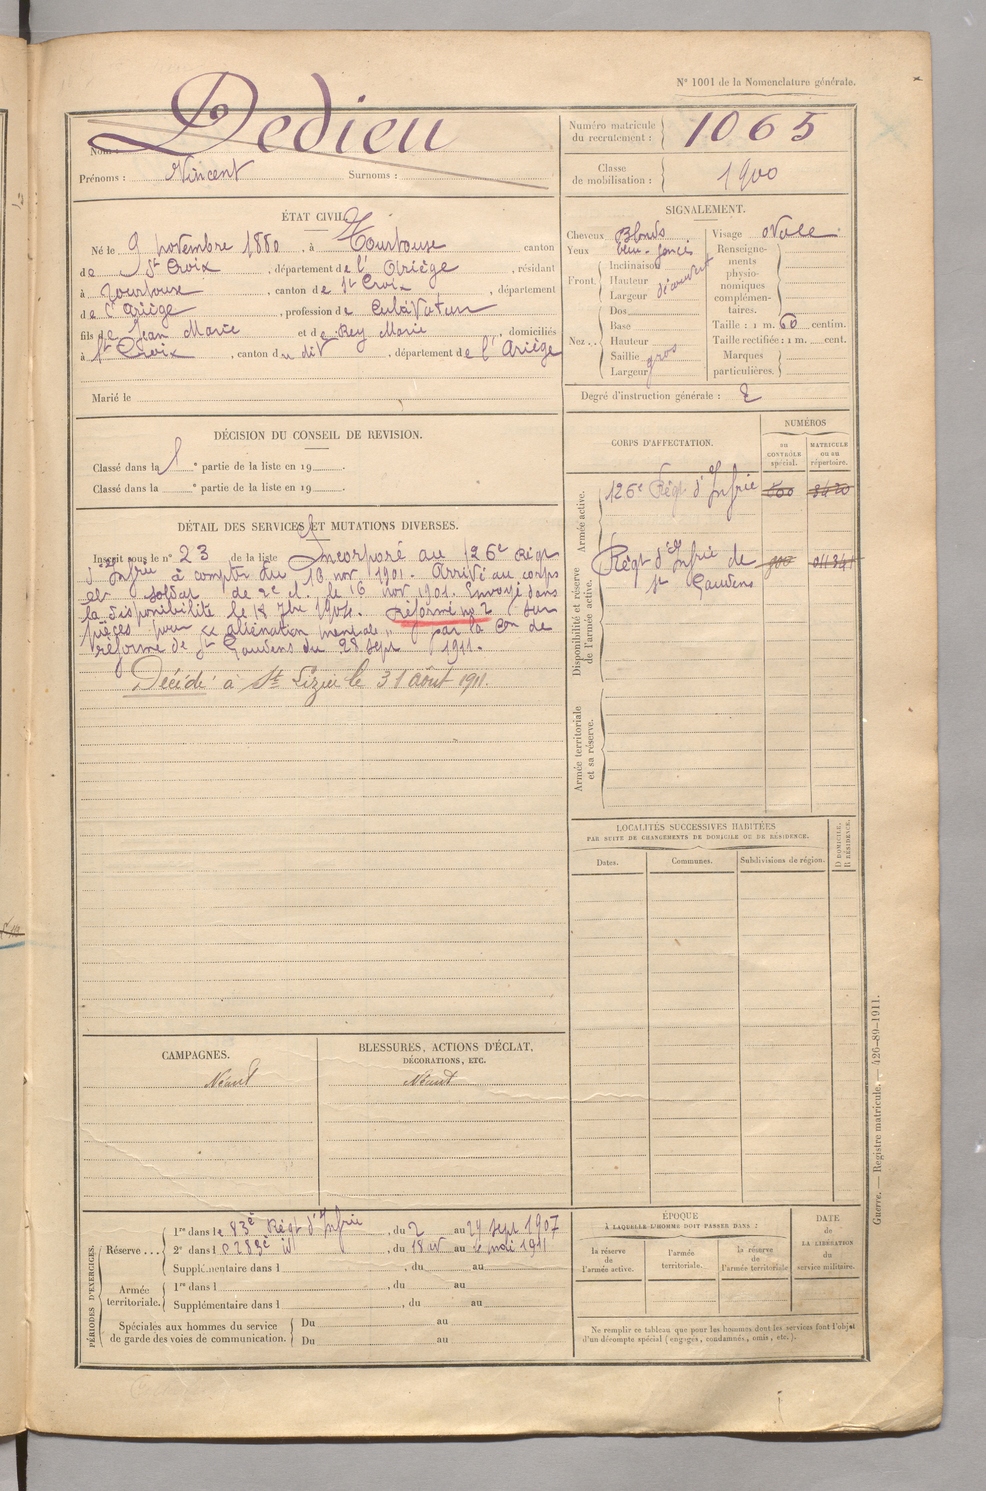 N° 1001 de la Nomenclature générale.
Nom : Dedieu
Prénoms : Vincent Surnoms :
Numéro matricule du recrutement : 1065
Classe de mobilisation : 1900
ÉTAT CIVIL.
Né le 9 novembre 1880, à Tourtouse, canton
de St Croix, département de l'Ariège, résidant
à Tourtouse, canton de St Croix, département
de l'Ariège, profession de Cultivateur
fils de Jean Marie et de Rey Marie, domiciliés
à St Croix, canton du dit, département de l'Ariège
Marié le
SIGNALEMENT.
Cheveux Blonds Visage ovale
Yeux bleu-foncé
Front. Inclinaison
Hauteur découvert
Largeur
Nez. Dos
Base
Hauteur
Saillie gros
Largeur
Renseignements physionomiques complémentaires.
Taille : 1 m. 60 centim.
Taille rectifiée : 1 m. cent.
Marques particulières.
Degré d'instruction générale : 2
DÉCISION DU CONSEIL DE REVISION.
Classé dans la 1 e partie de la liste en 19 .
Classé dans la e partie de la liste en 19 .
DÉTAIL DES SERVICES ET MUTATIONS DIVERSES.
Inscrit sous le n° 23 de la liste Incorporé au 126e Régt
d'Infrie à compter du 16 nov. 1901. Arrivé au corps
et soldat de 2e cl. le 16 nov 1901. Envoyé dans
la disponibilité le 18 7bre 1904. Réformé no 2 sur
pièces pour "aliénation mentale" par la Con de
réforme de St Gaudens du 28 sept 1911.
Décédé à St Lizier le 31 août 1911.
CORPS D'AFFECTATION.
NUMÉROS
au CONTRÔLE spécial.
MATRICULE ou au répertoire.
Armée active.
126e Régt d'Infrie 8420
Disponibilité et réserve de l'armée active.
Régt d'Infrie de
St Gaudens
Armée territoriale et sa réserve.
LOCALITÉS SUCCESSIVES HABITÉES
PAR SUITE DE CHANGEMENTS DE DOMICILE OU DE RÉSIDENCE.
Dates. Communes. Subdivisions de région. D DOMICILE, R RÉSIDENCE.
CAMPAGNES.
Néant
BLESSURES, ACTIONS D'ÉCLAT,
DÉCORATIONS, ETC.
Néant
PÉRIODES D'EXERCICES.
Réserve . . .
1re dans le 83e Régt d'Infrie, du 2 au 29 sept 1907
2e dans le 283e id, du 18 av au 4 mai 1911
Supplémentaire dans l , du au
Armée territoriale.
1re dans l , du au
Supplémentaire dans l , du au
Spéciales aux hommes du service de garde des voies de communication.
Du au
Du au
ÉPOQUE
À LAQUELLE L'HOMME DOIT PASSER DANS :
la réserve de l'armée active.
l'armée territoriale.
la réserve de l'armée territoriale
DATE de LA LIBÉRATION du service militaire.
Ne remplir ce tableau que pour les hommes dont les services font l'objet
d'un décompte spécial (engagés, condamnés, omis, etc.).
Guerre. — Registre matricule. — 426-89-1911.